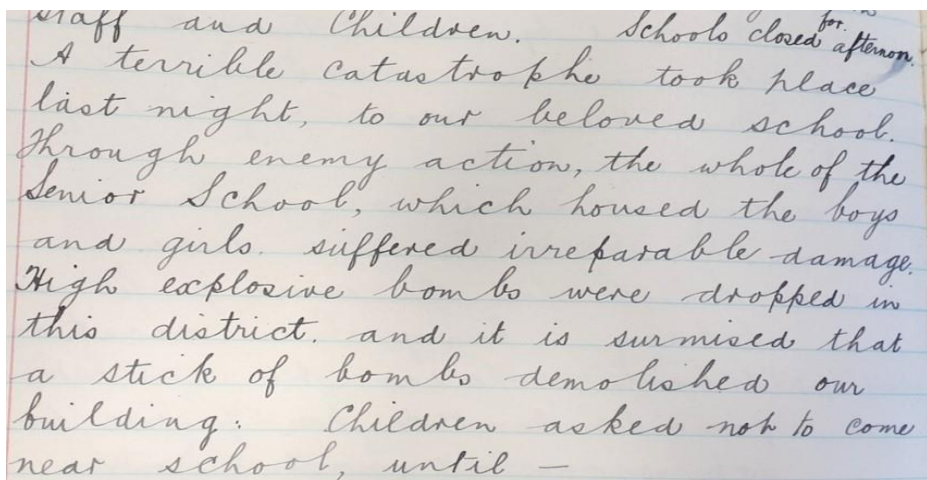 staff and Children. Schools closed for afternoon.
A terrible catastrophe took place
last night, to our beloved school.
Through enemy action, the whole of the
Senior School, which housed the boys
and girls. suffered irreparable damage.
High explosive bombs were dropped in
this district. and it is surmised that
a stick of bombs demolished our
building: Children asked not to come
near school, until —